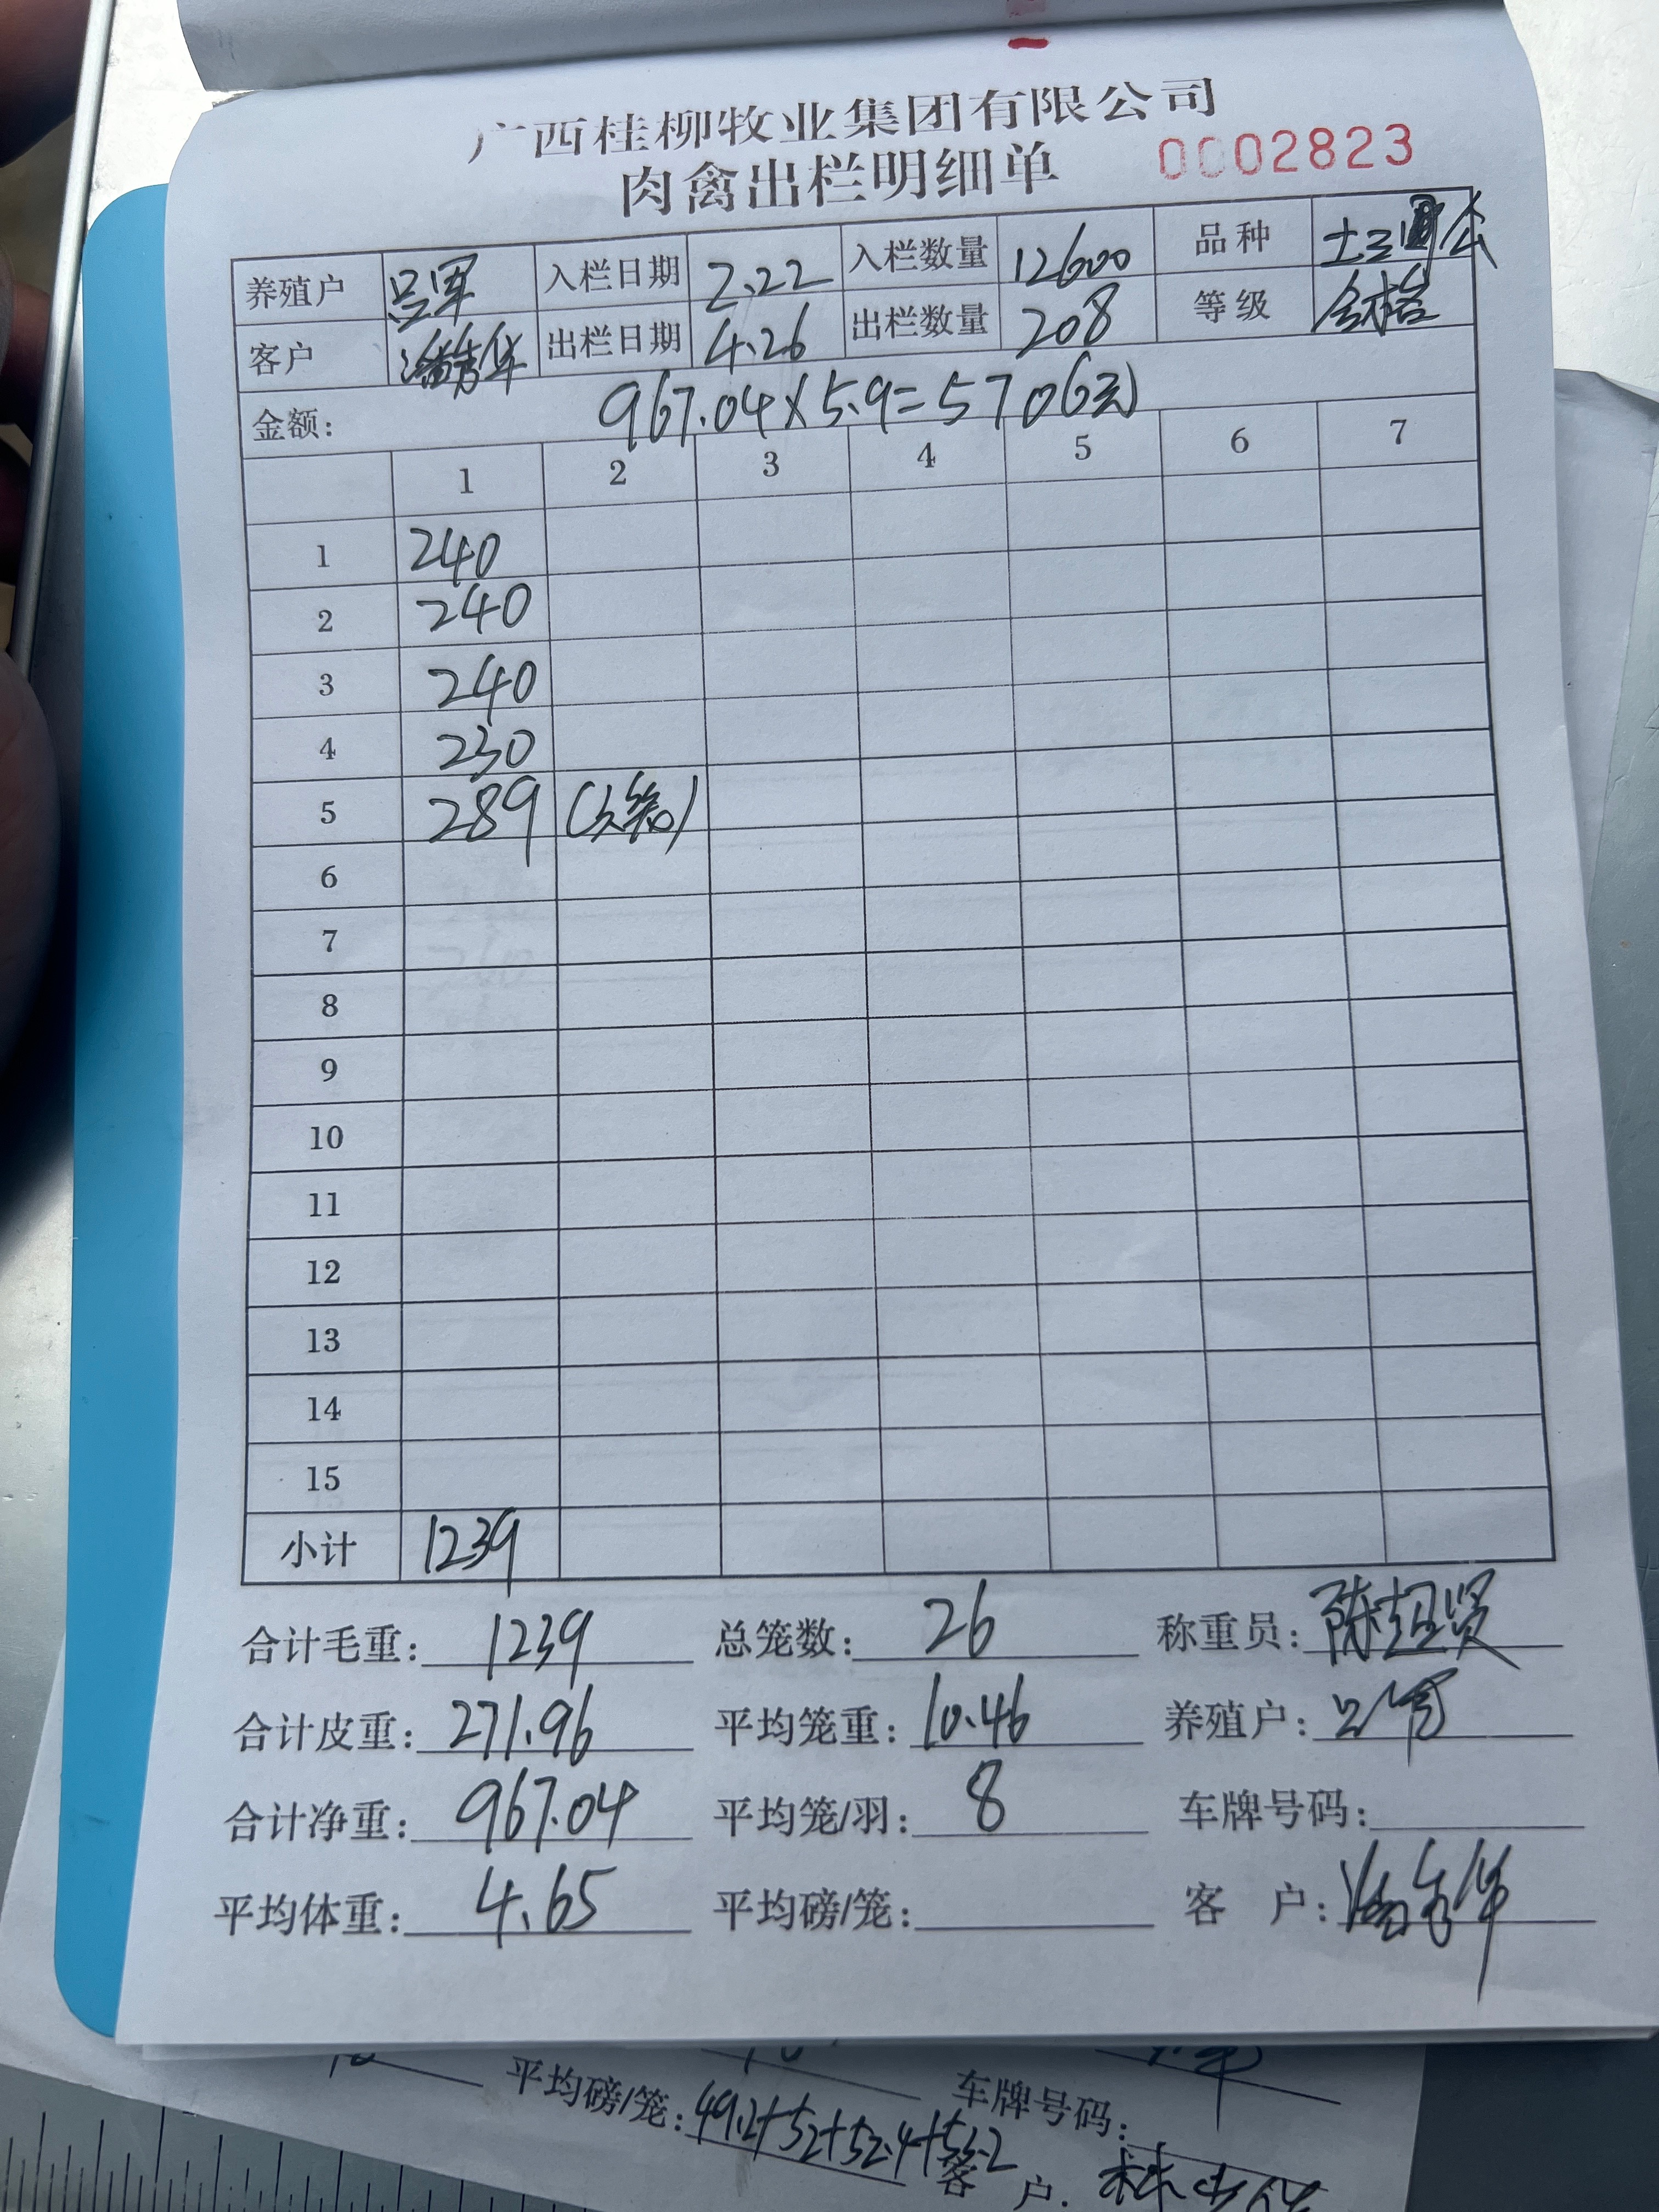 广西桂柳牧业集团有限公司
肉禽出栏明细单 0002823
养殖户 吕军 入栏日期 2.22 入栏数量 12600 品种 土三 公
客户 潘秀华 出栏日期 4.26 出栏数量 208 等级 合格
金额: 967.04×5.9=5706(元)
1 2 3 4 5 6 7
1 240
2 240
3 240
4 230
5 289 (6笼)
6
7
8
9
10
11
12
13
14
15
小计 1239
合计毛重: 1239 总笼数: 26 称重员: 陈超贤
合计皮重: 271.96 平均笼重: 10.46 养殖户: 吕军
合计净重: 967.04 平均笼/羽: 8 车牌号码:
平均体重: 4.65 平均磅/笼: 客户: 潘秀华
平均磅/笼: 49.2+52+52.4+53.2 车牌号码:
客户: